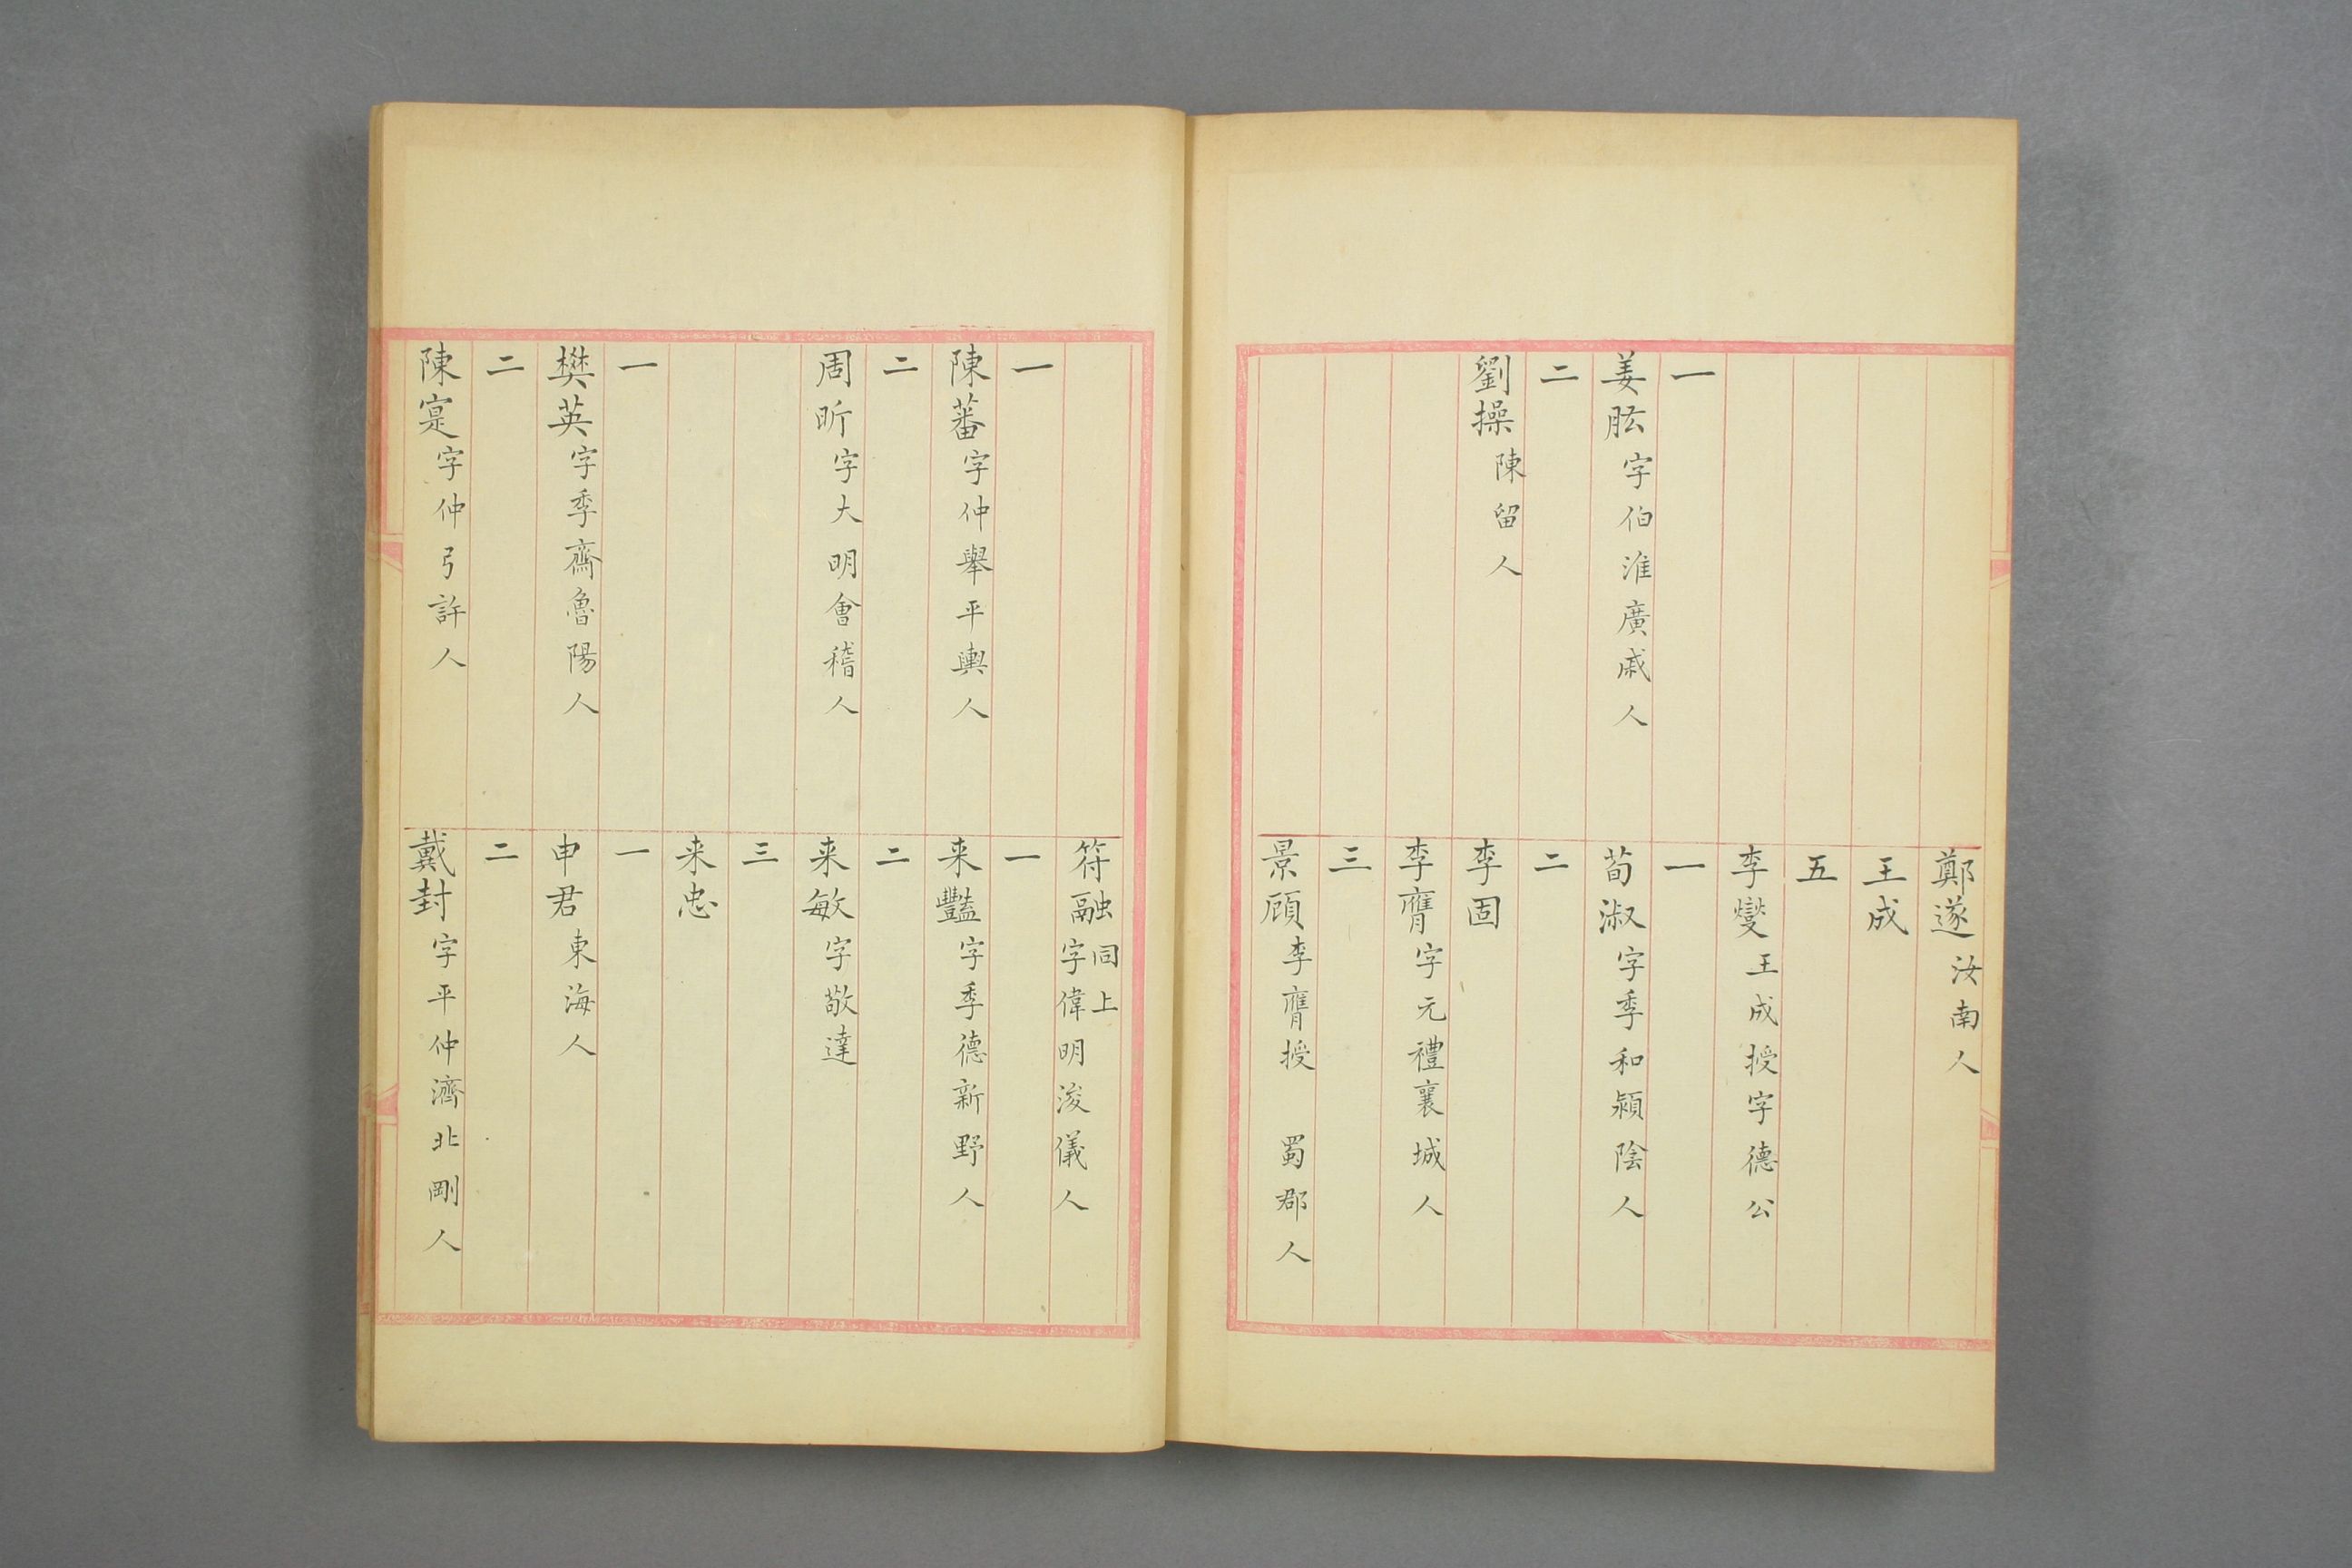 一
姜肱字伯淮廣戚人
二
劉操陳留人
鄭遂汝南人
王成
五
李燮王成授字德公
一
荀淑字季和潁陰人
二
李固
李膺字元禮襄城人
三
景頋李膺授 蜀郡人
一
陳蕃字仲舉平輿人
二
周昕字大明會稽人
一
樊英字季齊魯陽人
二
陳寔字仲弓許人
符融同上字偉明浚儀人
一
来豔字季德新野人
二
来敏字敬達
三
来忠
一
申君東海人
二
戴封字平仲濟北剛人